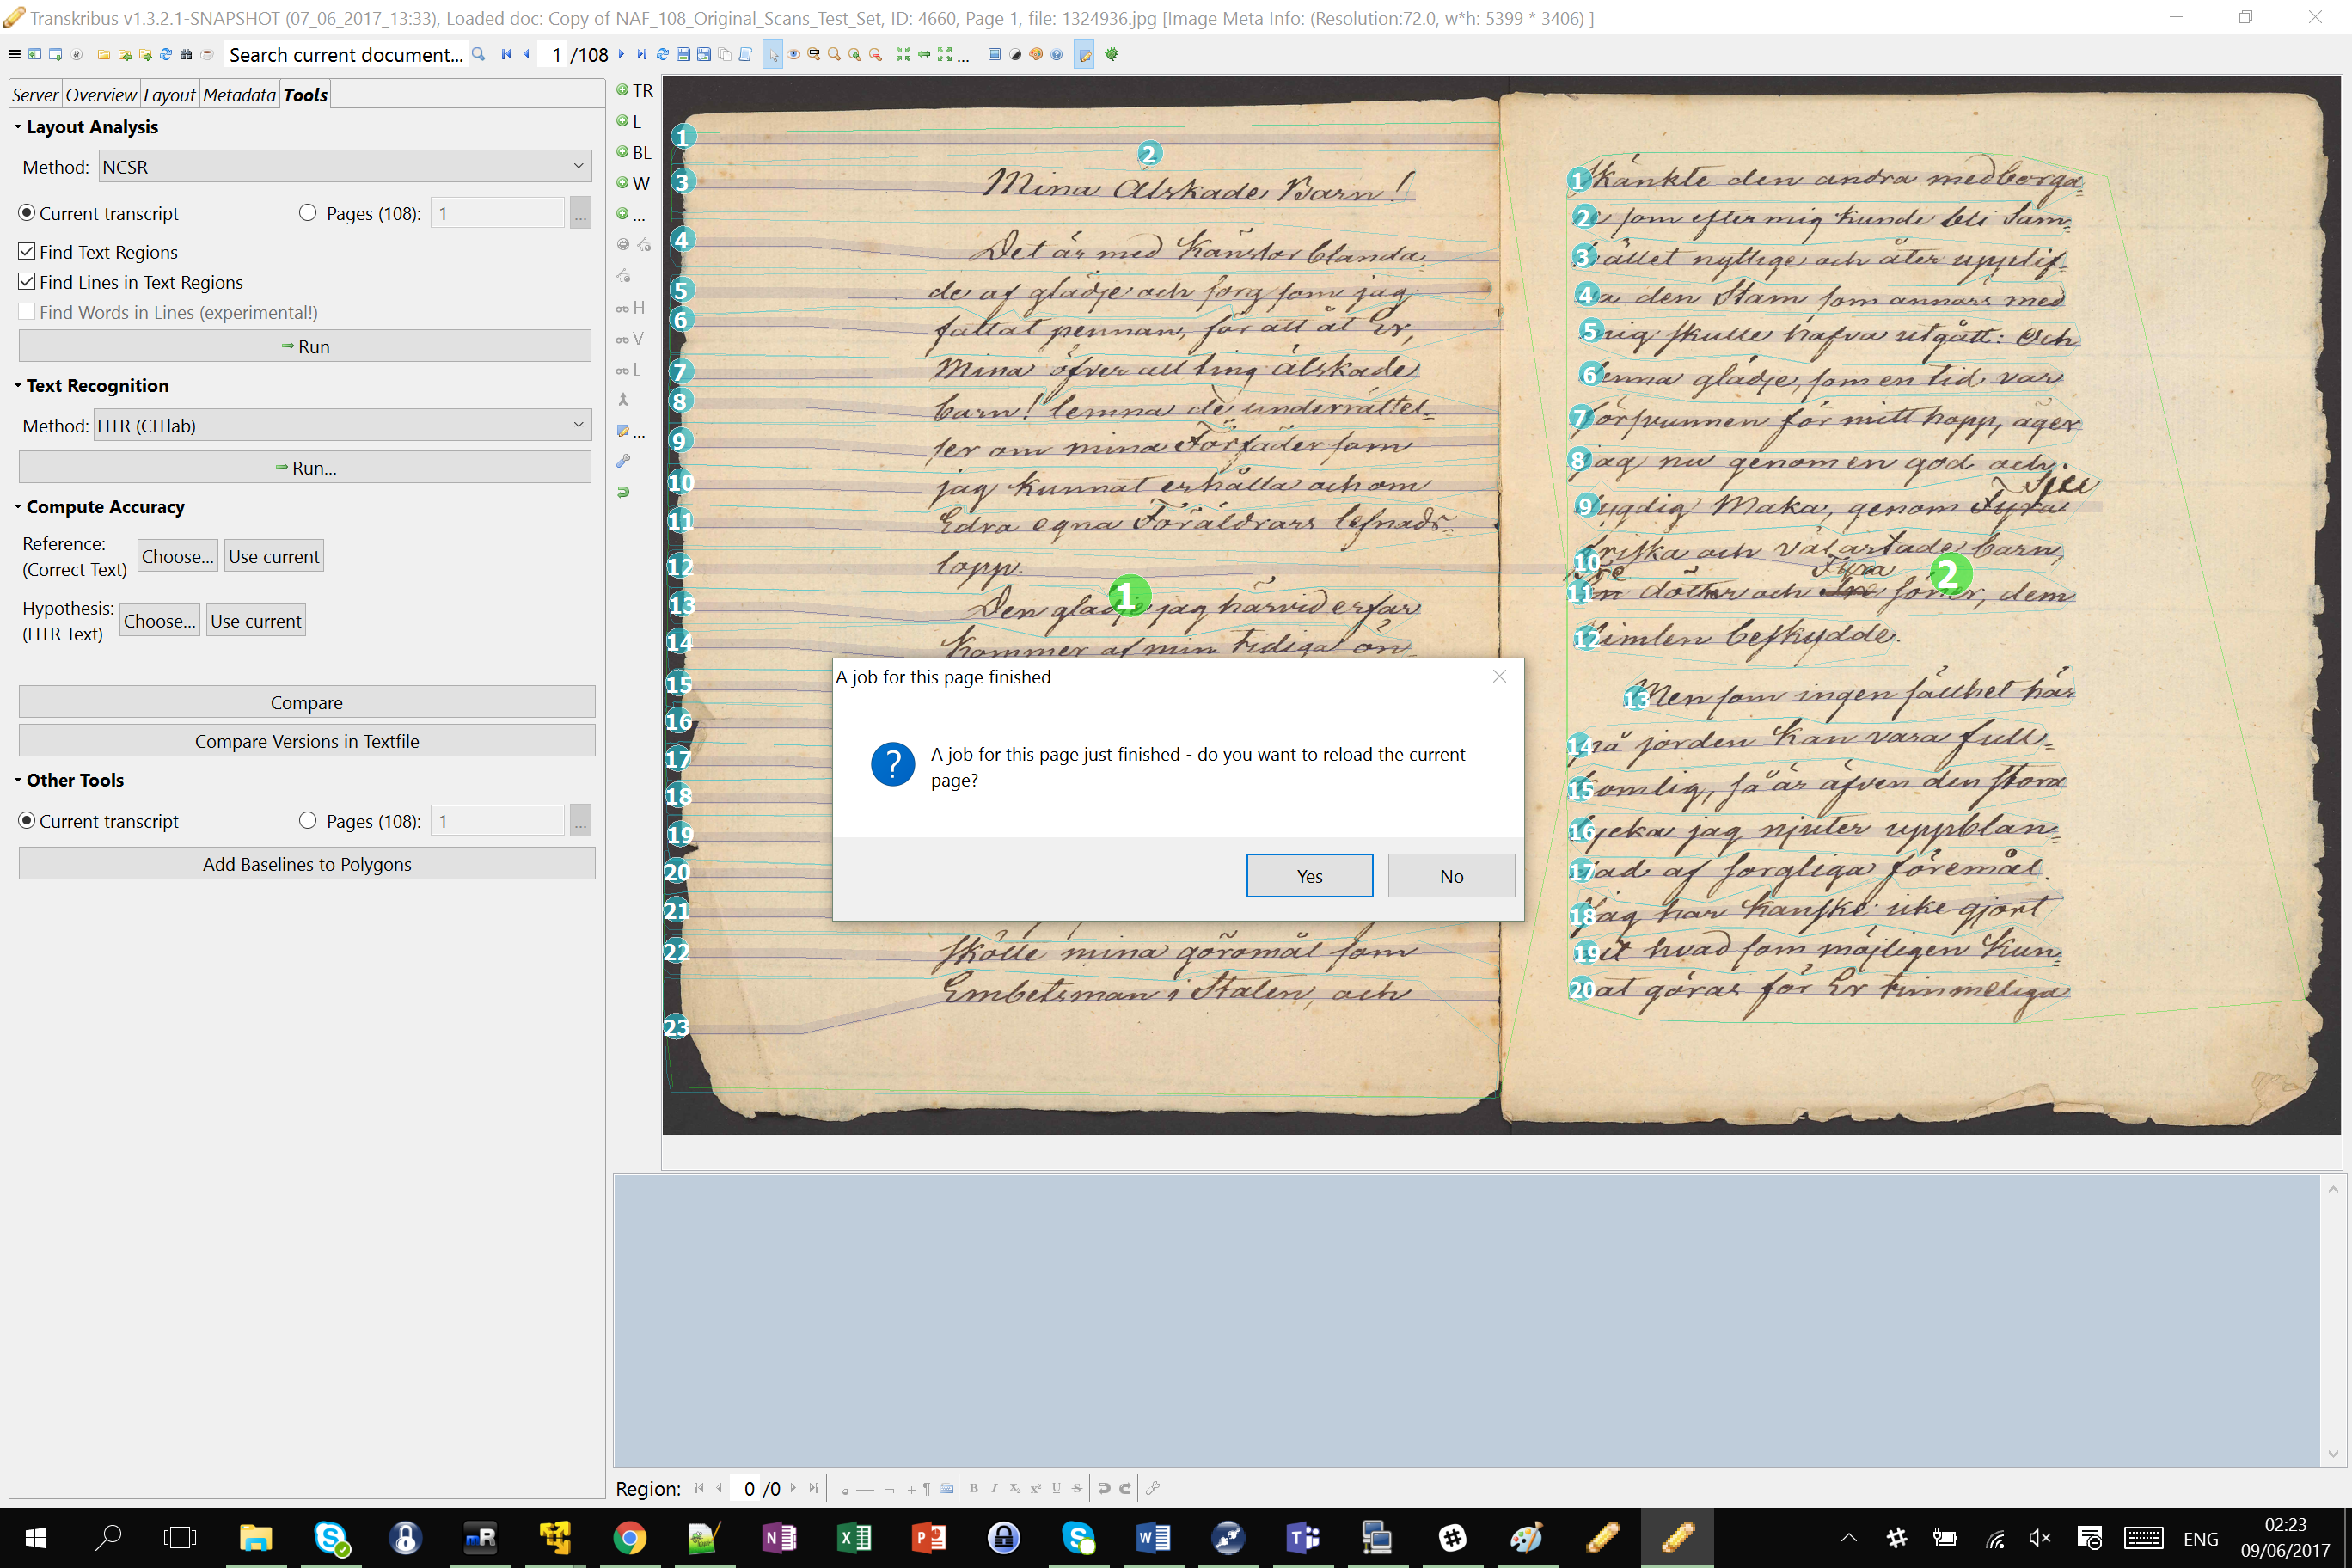 Transkribus v1.3.2.1-SNAPSHOT (07_06_2017_13:33), Loaded doc: Copy of NAF_108_Original_Scans_Test_Set, ID: 4660, Page 1, file: 1324936.jpg [Image Meta Info: (Resolution:72.0, w*h: 5399 * 3406) ]
Search current document... 1 /108
Server Overview Layout Metadata Tools
Layout Analysis
Method: NCSR
Current transcript Pages (108): 1 ...
Find Text Regions
Find Lines in Text Regions
Find Words in Lines (experimental!)
Run
Text Recognition
Method: HTR (CITlab)
Run...
Compute Accuracy
Reference:
(Correct Text) Choose... Use current
Hypothesis:
(HTR Text) Choose... Use current
Compare
Compare Versions in Textfile
Other Tools
Current transcript Pages (108): 1 ...
Add Baselines to Polygons
TR
L
BL
W
...
H
V
L
...
1
2
3 Mina Älskade Barn!
4 Det är med Känslor blanda
5 de af glädje och sorg som jag
6 fattat pennan, för att åt Er,
7 Mina öfver all ting älskade
8 barn! lemna de underrättel=
9 ser om mina Förfäder som
10 jag kunnat erhålla och om
11 Edra egna Föräldrars lefnads=
12 lopp.
13 Den glädje jag härvid erfar
14 Kommer af min tidiga ön
15
16
17
18
19
20
21
22 skötte mina göromål som
Embetsman i Staten, och
23
1
1 skänkte den andra medborga
2 som efter mig kunde bli Sam=
3 hället nyttige och åter upplif=
4 va den Stam som annars med
5 mig skulle hafva utgått: Och
6 denna glädje, som en tid var
7 försvunnen för mitt hopp, äger
8 jag nu genom en god och
9 dygdig Maka, genom Fyra
10 friska och välartade barn,
Tre Fyra
11 En döttrar och Tre söner, dem
2
12 Himlen beskydde.
13 Men som ingen sällhet här
14 på jorden Kan vara full=
15 komlig, så är äfven den stora
16 lycka jag njuter uppblan=
17 dad af sorgliga föremål.
18 Jag har Kanske icke gjort
19 allt hvad som möjligen Kun=
20 nat göras för Er timmeliga
A job for this page finished
A job for this page just finished - do you want to reload the current
page?
Yes No
Region: 0 /0
B I X₂ x² U S
ENG
02:23
09/06/2017